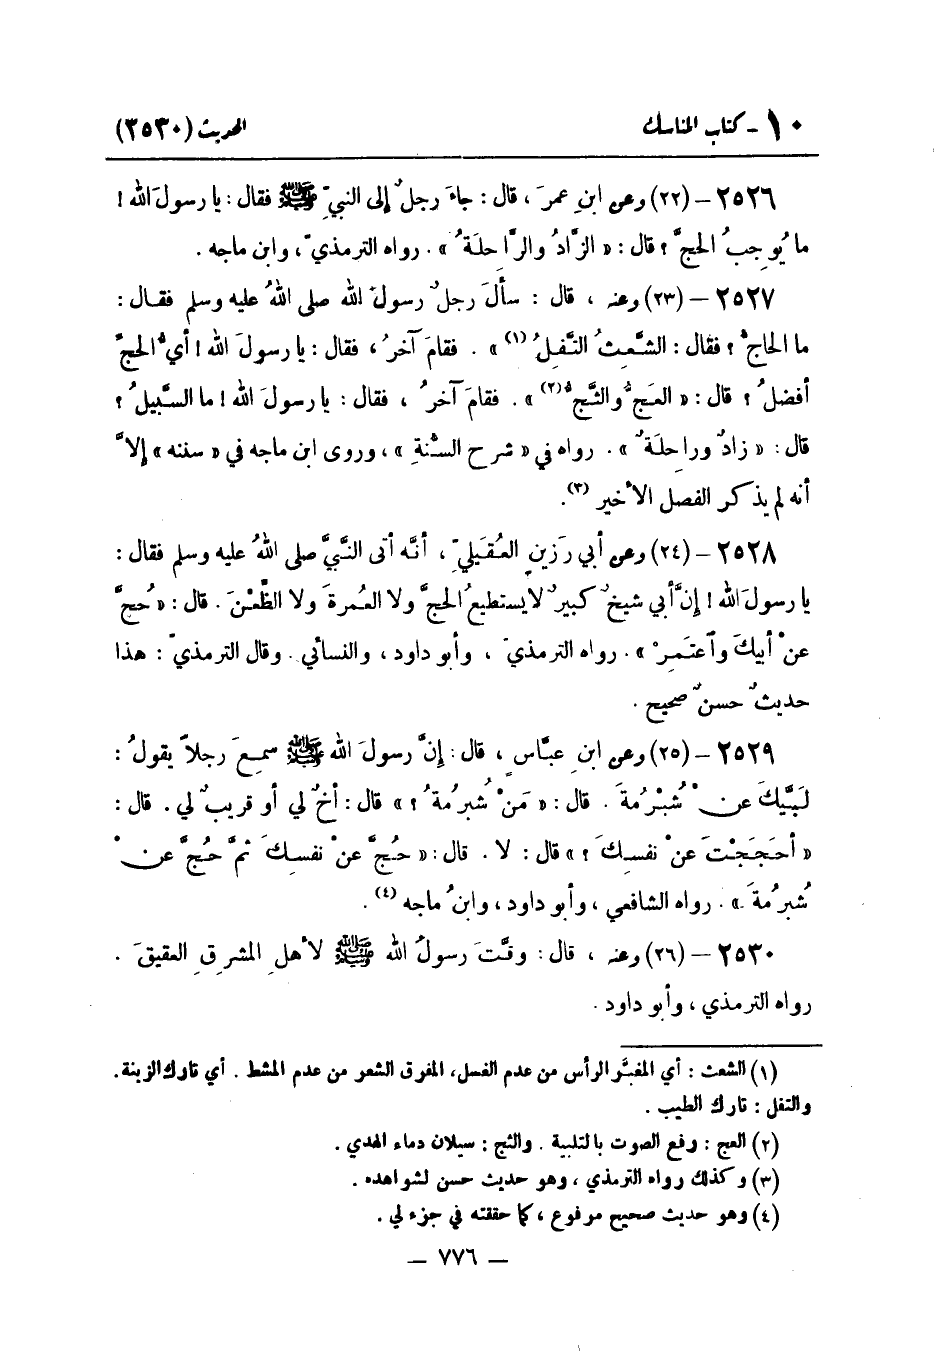 ١٠ - كتاب المناسك
الحديث (٢٥٣٠)
٢٥٢٦ – (٢٢) وعن ابنِ عمرَ ، قال : جاءَ رجلٌ إلى النبيِّ ﷺ فقال : يا رسولَ الله !
ما يُوجبُ الحجَّ ؟ قال : « الزَّادُ والرَّاحِلَةُ » . رواه الترمذيّ ، وابن ماجه .
٢٥٢٧ – (٢٣) وعنه ، قال : سألَ رجلٌ رسولَ الله صلى اللهُ عليه وسلم فقـال :
ما الحاجُّ ؟ فقال : الشَّعِثُ التَّفِلُ (١) » . فقامَ آخرُ ، فقال : يا رسولَ الله ! أيُّ الحجِّ
أفضلُ ؟ قال : « العَجُّ والثَّجُّ (٢) » . فقامَ آخرُ ، فقال : يا رسولَ الله ! ما السَّبيلُ ؟
قال : « زادٌ وراحِلَةٌ » . رواه في « شرح السُّنةِ » ، وروى ابن ماجه في « سننه » إلاَّ
أنه لم يذكر الفصل الأخير (٣).
٢٥٢٨ – (٢٤) وعن أبي رَزينٍ العُقَيليِّ ، أنَّه أتى النَّبيَّ صلى اللهُ عليه وسلم فقال :
يا رسولَ الله ! إنَّ أبي شيخٌ كبيرٌ لا يستطيعُ الحجَّ ولا العُمرةَ ولا الظَّعْنَ . قال : « حُجَّ
عنْ أبيكَ وٱعتَمِرْ » . رواه الترمذيّ ، وأبو داود ، والنسائي . وقال الترمذيّ : هذا
حديثٌ حسنٌ صحيح .
٢٥٢٩ – (٢٥) وعن ابنِ عبَّاسٍ ، قال : إنَّ رسولَ الله ﷺ سمعَ رجلاً يقولُ :
لَبَّيكَ عنْ شُبْرُمةَ . قال : « مَنْ شبرُمةُ ؟ » قال : أخٌ لي أو قريبٌ لي . قال :
« أحَجَجْتَ عنْ نفسِكَ ؟ » قال : لا . قال : « حُجَّ عنْ نفسِكَ ثمَّ حُجَّ عنْ
شُبرُمةَ » . رواه الشافعي ، وأبو داود ، وابنُ ماجه (٤) .
٢٥٣٠ – (٢٦) وعنه ، قال : وقَّتَ رسولُ الله ﷺ لأهلِ المشرقِ العقيقَ .
رواه الترمذي ، وأبو داود .
(١) الشعث : أي المغبَّر الرأس من عدم الغسل، المفرق الشعر من عدم المشط . أي تارك الزينة .
والتفل : تارك الطيب .
(٢) العج : رفع الصوت بالتلبية . والثج : سيلان دماء الهدي .
(٣) وكذلك رواه الترمذي ، وهو حديث حسن لشواهده .
(٤) وهو حديث صحيح مرفوع ، كما حققته في جزء لي .
– ٧٧٦ –